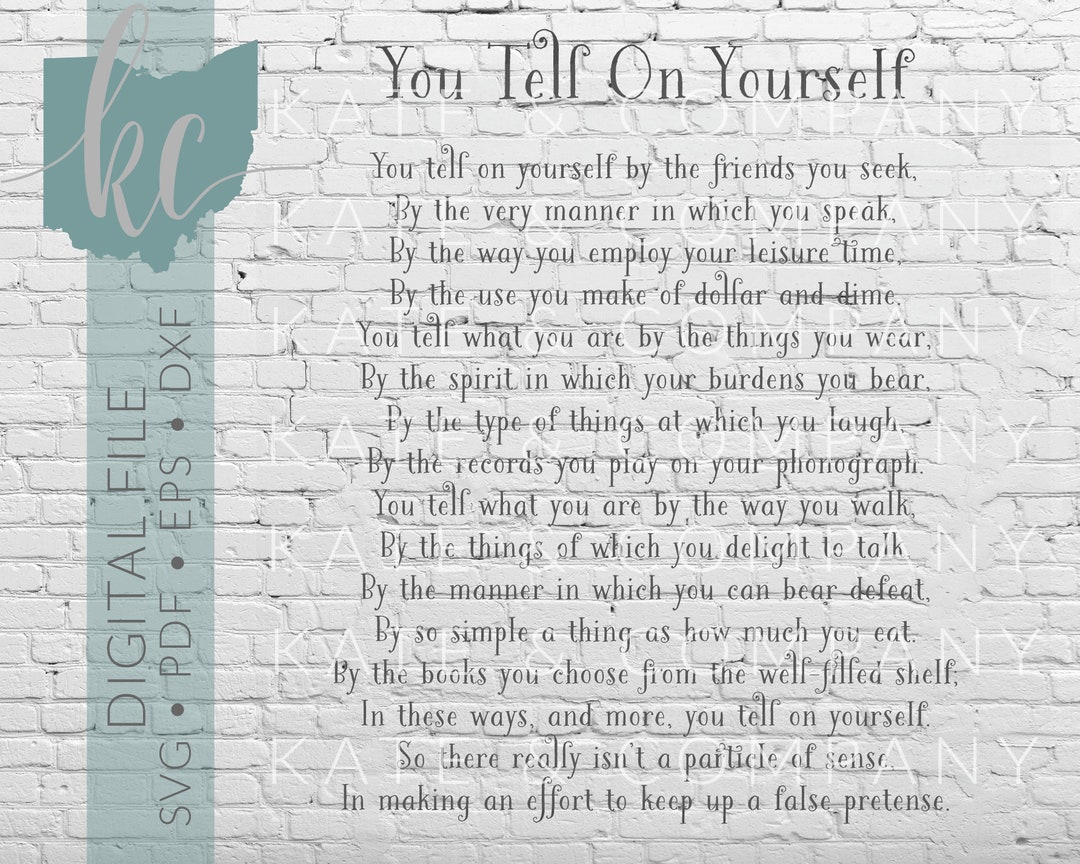 kc
DIGITAL FILE
SVG • PDF • EPS • DXF
You Tell On Yourself
You tell on yourself by the friends you seek,
By the very manner in which you speak,
By the way you employ your leisure time,
By the use you make of dollar and dime.
You tell what you are by the things you wear,
By the spirit in which your burdens you bear,
By the type of things at which you laugh,
By the records you play on your phonograph.
You tell what you are by the way you walk,
By the things of which you delight to talk,
By the manner in which you can bear defeat,
By so simple a thing as how much you eat.
By the books you choose from the well-filled shelf;
In these ways, and more, you tell on yourself.
So there really isn't a particle of sense,
In making an effort to keep up a false pretense.
KATE & COMPANY
KATE & COMPANY
KATE & COMPANY
KATE & COMPANY
KATE & COMPANY
KATE & COMPANY
KATE & COMPANY